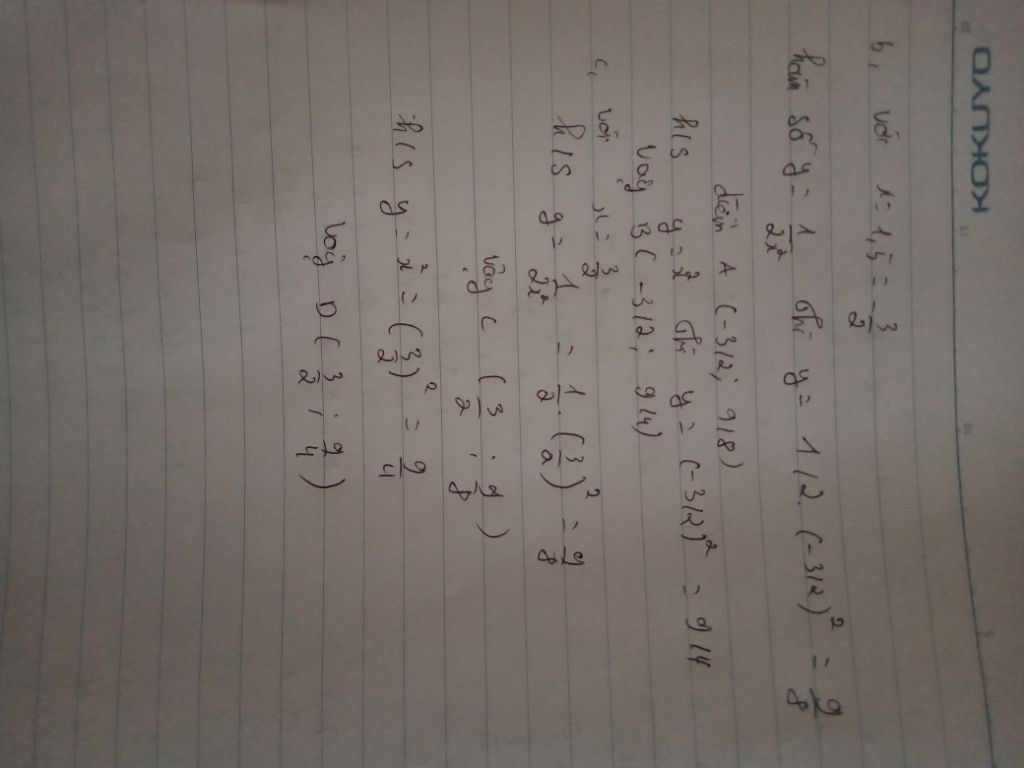 KOKUYO
b, với x = 1,5 = -3/2
hàm số y = 1/2x² thì y = 1/2. (-3/2)² = 9/8
điểm A (-3/2; 9/8)
h/s y = ² thì y = (-3/2)² = 9/4
Vậy B (-3/2; 9/4)
c, với x = 3/2
h/s y = 1/2x² = 1/2 . (3/2)² = 9/8
Vậy C (3/2 ; 9/8)
h/s y = x² = (3/2)² = 9/4
Vậy D (3/2 ; 9/4)